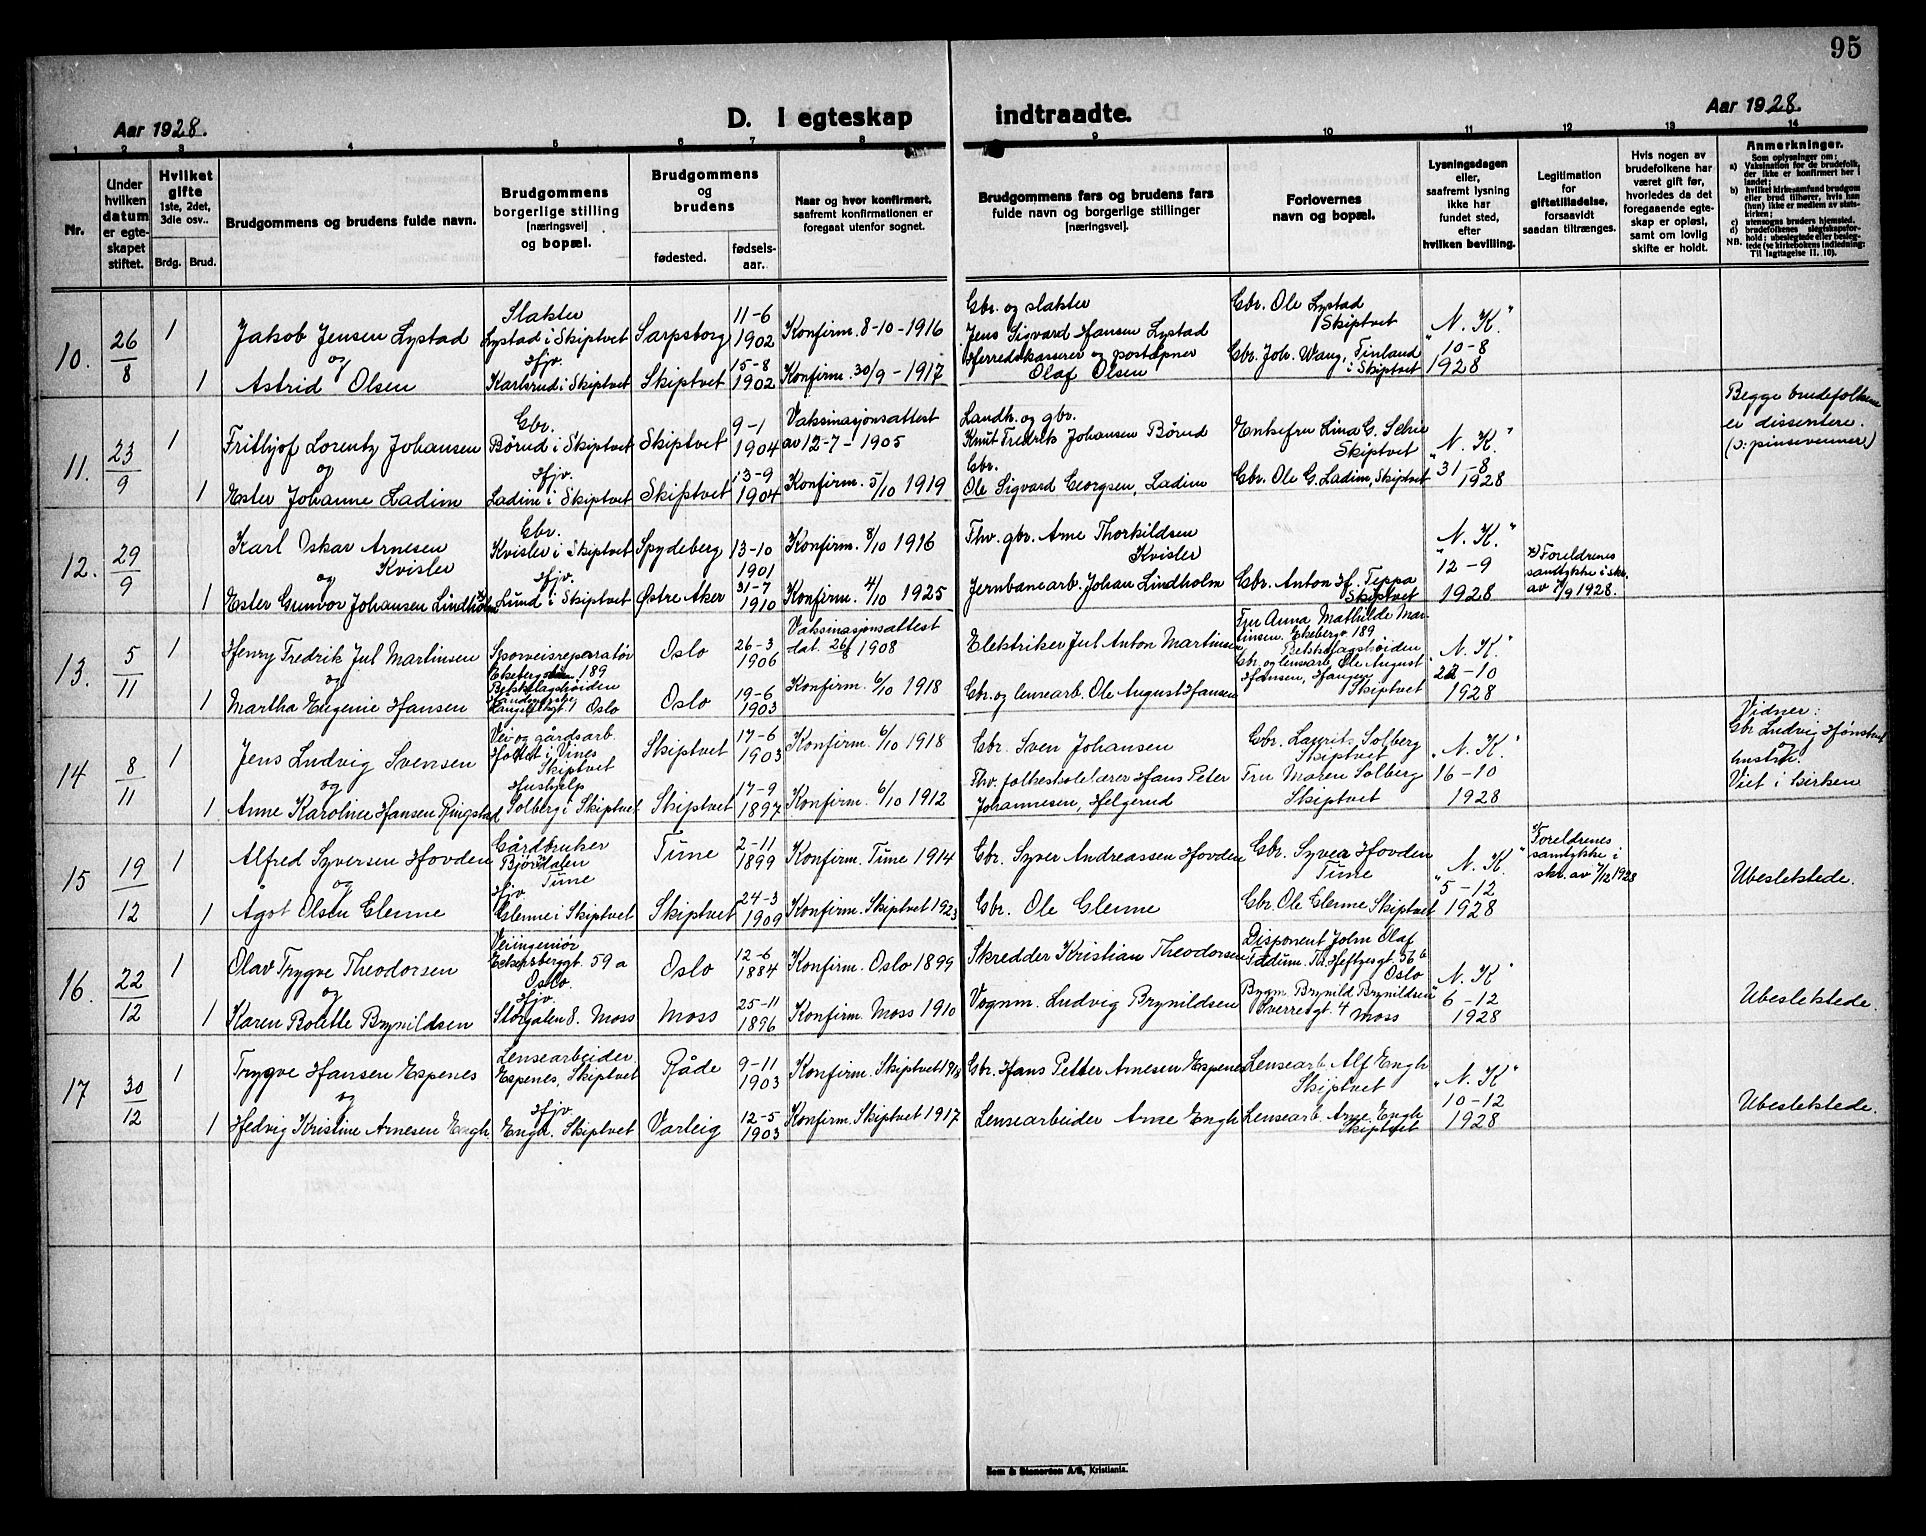 95
Aar 1928.
D. I egteskap indtraadte.
Aar 1928.
1 2 3 4 5 6 7 8 9 10 11 12 13 14
Nr.
Under
hvilken
datum
er egte-
skapet
stiftet.
Hvilket
gifte
1ste, 2det,
3die osv..
Brdg. Brud.
Brudgommens og brudens fulde navn.
Brudgommens
borgerlige stilling
[næringsvei]
og bopæl.
Brudgommens
og
brudens
fødested.
fødsels-
aar.
Naar og hvor konfirmert,
saafremt konfirmationen er
foregaat utenfor sognet.
Brudgommens fars og brudens fars
fulde navn og borgerlige stillinger
[næringsvei].
Forlovernes
navn og bopæl.
Lysningsdagen
eller,
saafremt lysning
ikke har
fundet sted,
efter
hvilken bevilling.
Legitimation
for
giftetilladelse,
forsaavidt
saadan tiltrænges.
Hvis nogen av
brudefolkene har
været gift før,
hvorledes da det
foregaaende egte-
skap er opløst,
samt om lovlig
skifte er holdt.
Anmerkninger.
Som oplysninger om:
a) Vaksination for de brudefolk,
der ikke er konfirmert her i
landet;
b) hvilket kirkesamfund brudgom
eller brud tilhører, hvis han
(hun) ikke er medlem av stats-
kirken;
c) utensogns bruders hjemsted.
d) brudefolkenes slegtskapsfor-
hold: ubeslegtede eller besleg-
tede (se kirkebokens indledning:
NB. Til iagttagelse II. 10).
10. 26/8
1
Jakob Jensen Lystad
og
1 Astrid Olsen
Slakter
Lystad i Skiptvet
Hjv.
Karlsrud i Skiptvet
Sarpsborg
Skiptvet
11-6
1902
15-8
1902
Konfirm. 8-10-1916
Konfirm. 30/9-1917
Gbr. og slakter
Jens Sigvard Hansen Lystad
Herredskasserer og poståpner
Olaf Olsen
Gbr. Ole Lystad
Skiptvet
Gbr. Joh. Wang, Finland
i Skiptvet
"N. K."
10-8
1928
11. 23/9
1
Frithjof Lorentz Johansen
og
1 Ester Johanne Ladim
Gbr.
Børud i Skiptvet
Hjv.
Ladim i Skiptvet
Skiptvet
Skiptvet
9-1
1904
13-9
1904
Vaksinasjonsattest
av 12-7-1905
Konfirm. 5/10 1919
Landh. og gbr.
Knut Fredrik Johansen Børud
Gbr.
Ole Sigvard Georgsen, Ladim
Enkefru Lina G.
Skiptvet
Gbr. Ole G. Ladim, Skiptvet
"N. K."
31-8
1928
Begge brudefolkene
er dissentere.
(ɔ: pinsevenner)
12. 29/9
Karl Oskar Arnesen
Kvisler
og
1 Ester Gunvor Johansen Lindholm
Gbr.
Kvisler i Skiptvet
Hjv.
Lund i Skiptvet
Spydeberg
Østre Aker
13-10
1901
31-7
1910
Konfirm. 8/10 1916
Konfirm. 4/10 1925
Fhv. gbr. Arne Thorkildsen
Kvisler
Jernbanearb. Johan Lindholm
Gbr. Anton H. Teppa
Skiptvet
"N. K."
12-9
1928
x) Foreldrenes
samtykke i skr.
av 7/9 1928.
13. 5/11
1
Henry Fredrik Jul Martinsen
og
1 Martha Eugenie Hansen
Sporveisreparatør
Ekebergveien 189
Bekkelagshøiden
1 Oslo
Oslo
Oslo
26-3
1906
19-6
1903
Vaksinasjonsattest
dat. 26/8 1908
Konfirm. 6/10 1918
Elektriker Jul Anton Martinsen
Gbr. og lensearb. Ole August Hansen
Fru Anna Mathilde Mar-
tinsen, Ekebergv 189
Bekkelagshøiden
Gbr. og lensearb. Ole August
Hansen, Haugen
Skiptvet
"N. K."
22-10
1928
14 8/11
1
Jens Ludvig Svensen
og
1 Anne Karoline Hansen Ringstad
Vei og gårdsarb.
i Vines
Skiptvet
Hushjelp
Solberg i Skiptvet
Skiptvet
Skiptvet
17-6
1903
17-9
1897
Konfirm. 6/10 1918
Konfirm. 6/10 1912
Gbr. Sven Johansen
Fhv. folkeskolelærer Hans Peter
Johannesen, Helgerud
Gbr. Laurits Solberg
Skiptvet
Fru Maren Solberg
Skiptvet
"N. K."
16-10
1928
Vidner:
Gbr Ludvig
hustru.
Viet i kirken
15 19/12
1
Alfred Syversen Hovden
og
1 Ågot Olsen Glenne
Gårdbruker
Bjørdalen
Tune
Hjv
Glenne i Skiptvet
Tune
Skiptvet
2-11
1899
24-3
1909
Konfirm. Tune 1914
Konfirm. Skiptvet 1923
Gbr. Syver Andreassen Hovden
Gbr. Ole Glenne
Gbr. Syver Hovden
Tune
Gbr. Ole Glenne Skiptvet
"N. K."
5-12
1928
x) Foreldrenes
samtykke i
skr. av 7/12 1928
Ubeslektede.
16. 22/12
1
Olav Trygve Theodorsen
og
1 Karen Bolette Brynildsen
Veiingeniør
Eckersberggt. 59 a
Oslo.
Hjv.
Storgaten 8. Moss
Oslo
Moss
12-6
1884
25-11
1896
Konfirm. Oslo 1899
Konfirm. Moss 1910
Skredder Kristian Theodorsen
Vognm. Ludvig Brynildsen
Disponent John Olaf
Th. Heftyesgt. 56 b
Oslo
Bygm. Brynild Brynildsen
Sverresgt. 4 Moss
"N. K"
6-12
1928
Ubeslektede.
17 30/12
1
Trygve Hansen Espenes
og
1 Hedvig Kristine Arnesen Engh
Lensearbeider.
Espenes, Skiptvet
Hjv.
Engh. Skiptvet
Råde
Varteig
9-11
1903
12-5
1903
Konfirm. Skiptvet 1918
Konfirm. Skiptvet 1917
Gbr. Hans Petter Arnesen Espenes
Lensearbeider Arne Engh
Lensearb. Alf Engh
Skiptvet
Lensearb. Arne Engh
Skiptvet
"N. K"
10-12
1928
Ubeslektede.
Sem & Stenersen A/S, Kristiania.